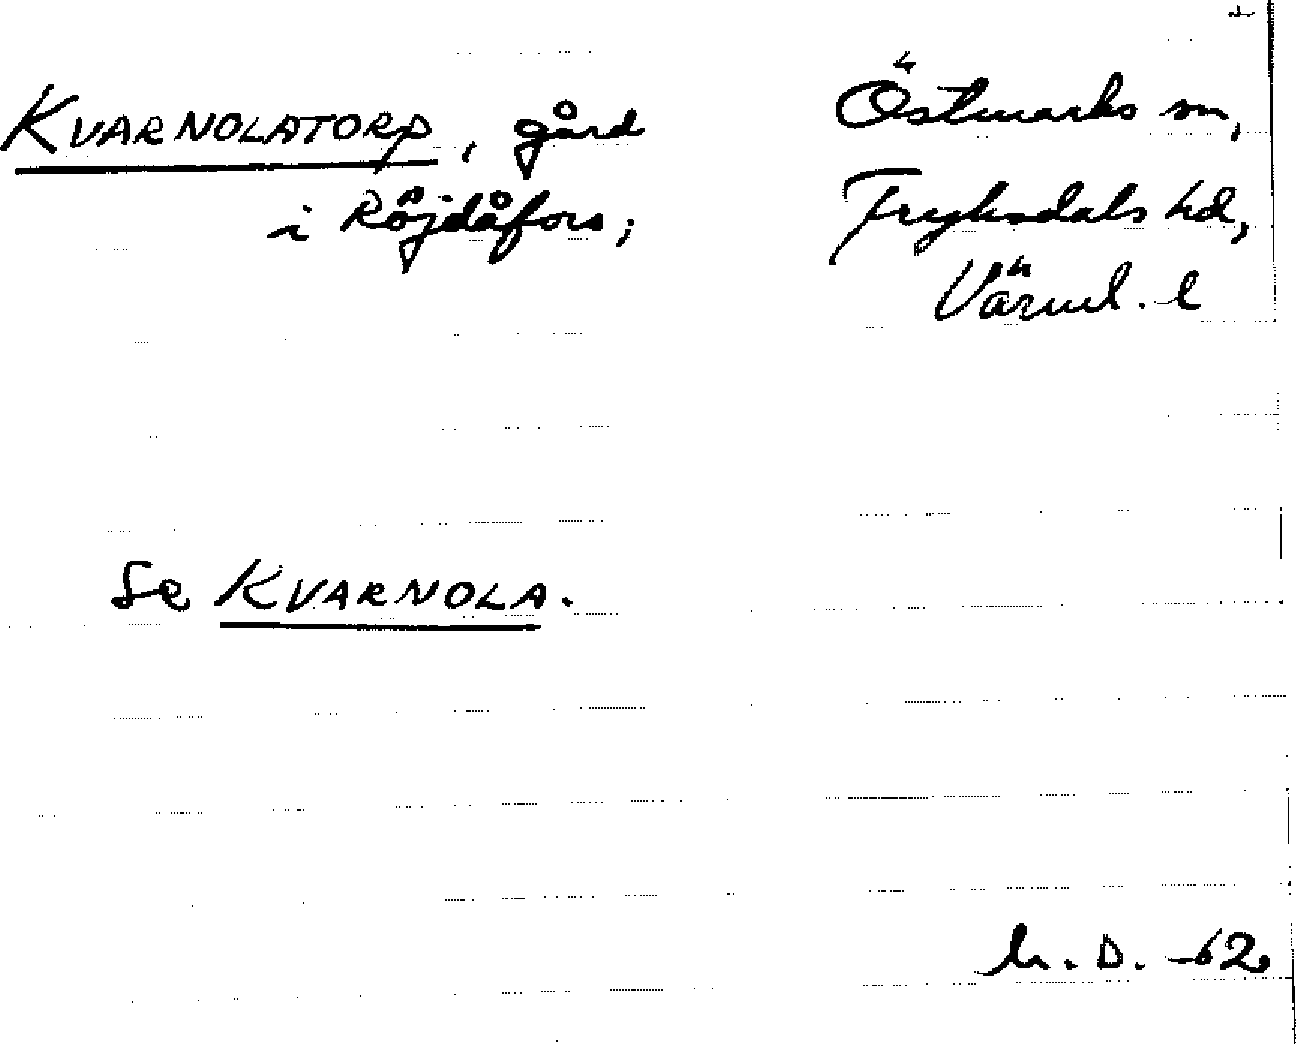 KVARNOLATORP, gård
i Röjdåfors;
Östmarks sn,
Fryksdals hd,
Värml. l
Se KVARNOLA.
D. -62